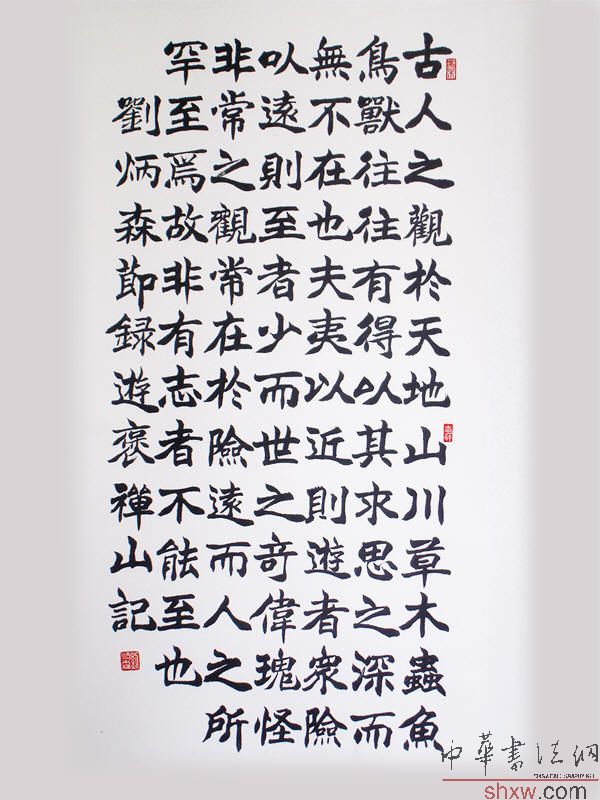 古人之觀於天地山川草木蟲魚
鳥獸往往有得以其求思之深而
無不在也夫夷以近則遊者眾險
以遠則至者少而世之奇偉瑰怪
非常之觀常在於險遠而人之所
罕至焉故非有志者不能至也
劉炳森節録遊褒禪山記
中華書法網
shxw.com